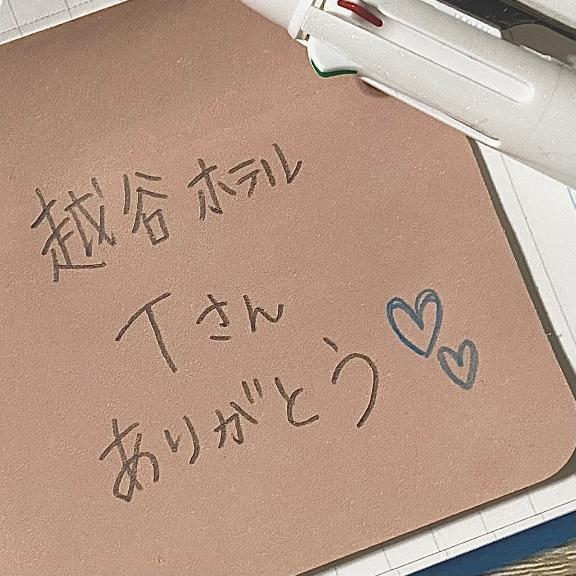 越谷 ホテル
Tさん
ありがとう